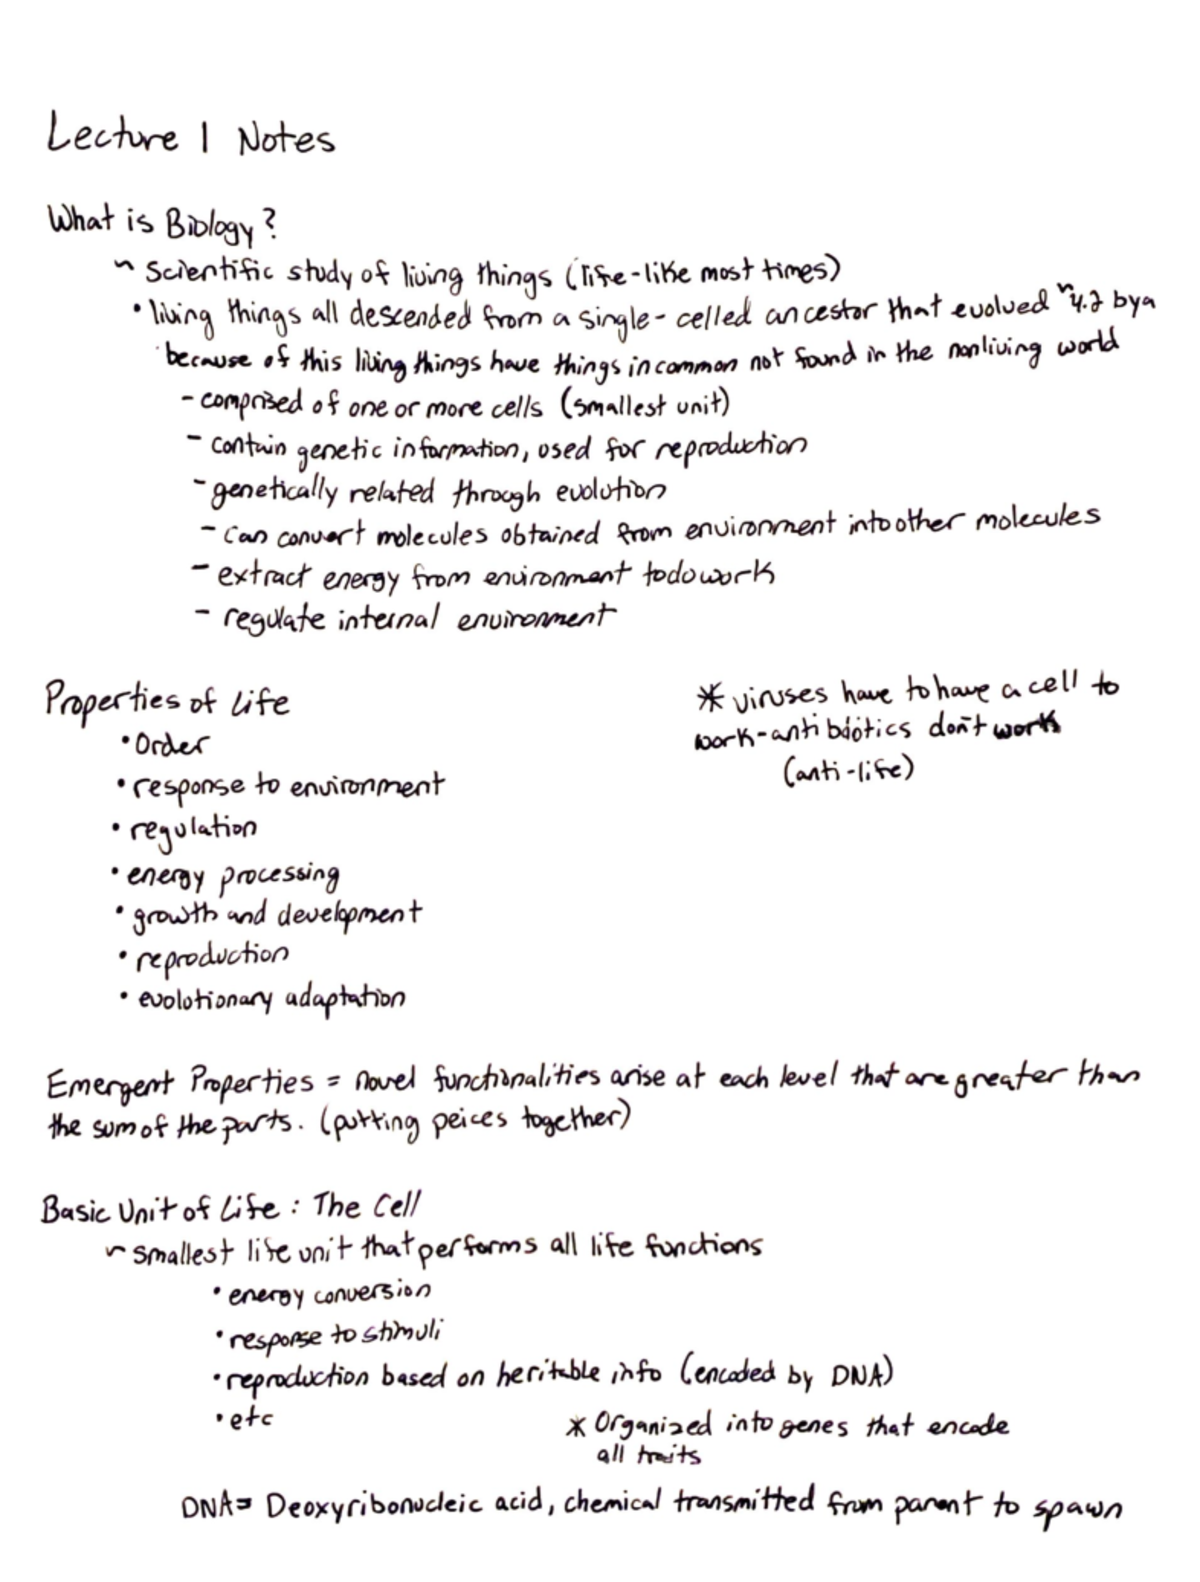 Lecture 1 Notes
What is Biology?
~ scientific study of living things (life-like most times)
• living things all descended from a single-celled ancestor that evolved ~4.2 bya
because of this living things have things in common not found in the nonliving world
- comprised of one or more cells (smallest unit)
- contain genetic information, used for reproduction
- genetically related through evolution
- can convert molecules obtained from environment into other molecules
- extract energy from environment to do work
- regulate internal environment
Properties of Life
• Order
• response to environment
• regulation
• energy processing
• growth and development
• reproduction
• evolutionary adaptation
* viruses have to have a cell to
work - antibiotics don't work
(anti-life)
Emergent Properties = novel functionalities arise at each level that are greater than
the sum of the parts. (putting peices together)
Basic Unit of Life: The Cell
~ smallest life unit that performs all life functions
• energy conversion
• response to stimuli
• reproduction based on heritable info (encoded by DNA)
• etc
* Organized into genes that encode
all traits
DNA = Deoxyribonucleic acid, chemical transmitted from parent to spawn